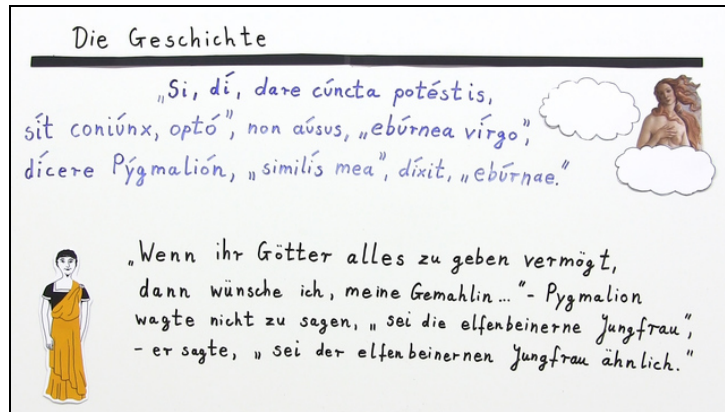 Die Geschichte
„Si, dí, dare cúncta potéstis,
sít coniúnx, optó", non aúsus, „ebúrnea vírgo",
dícere Pýgmalión, „similís mea", díxit, „ebúrnae."
„Wenn ihr Götter alles zu geben vermögt,
dann wünsche ich, meine Gemahlin..."- Pygmalion
wagte nicht zu sagen, „sei die elfenbeinerne Jungfrau",
- er sagte, „sei der elfenbeinernen Jungfrau ähnlich."